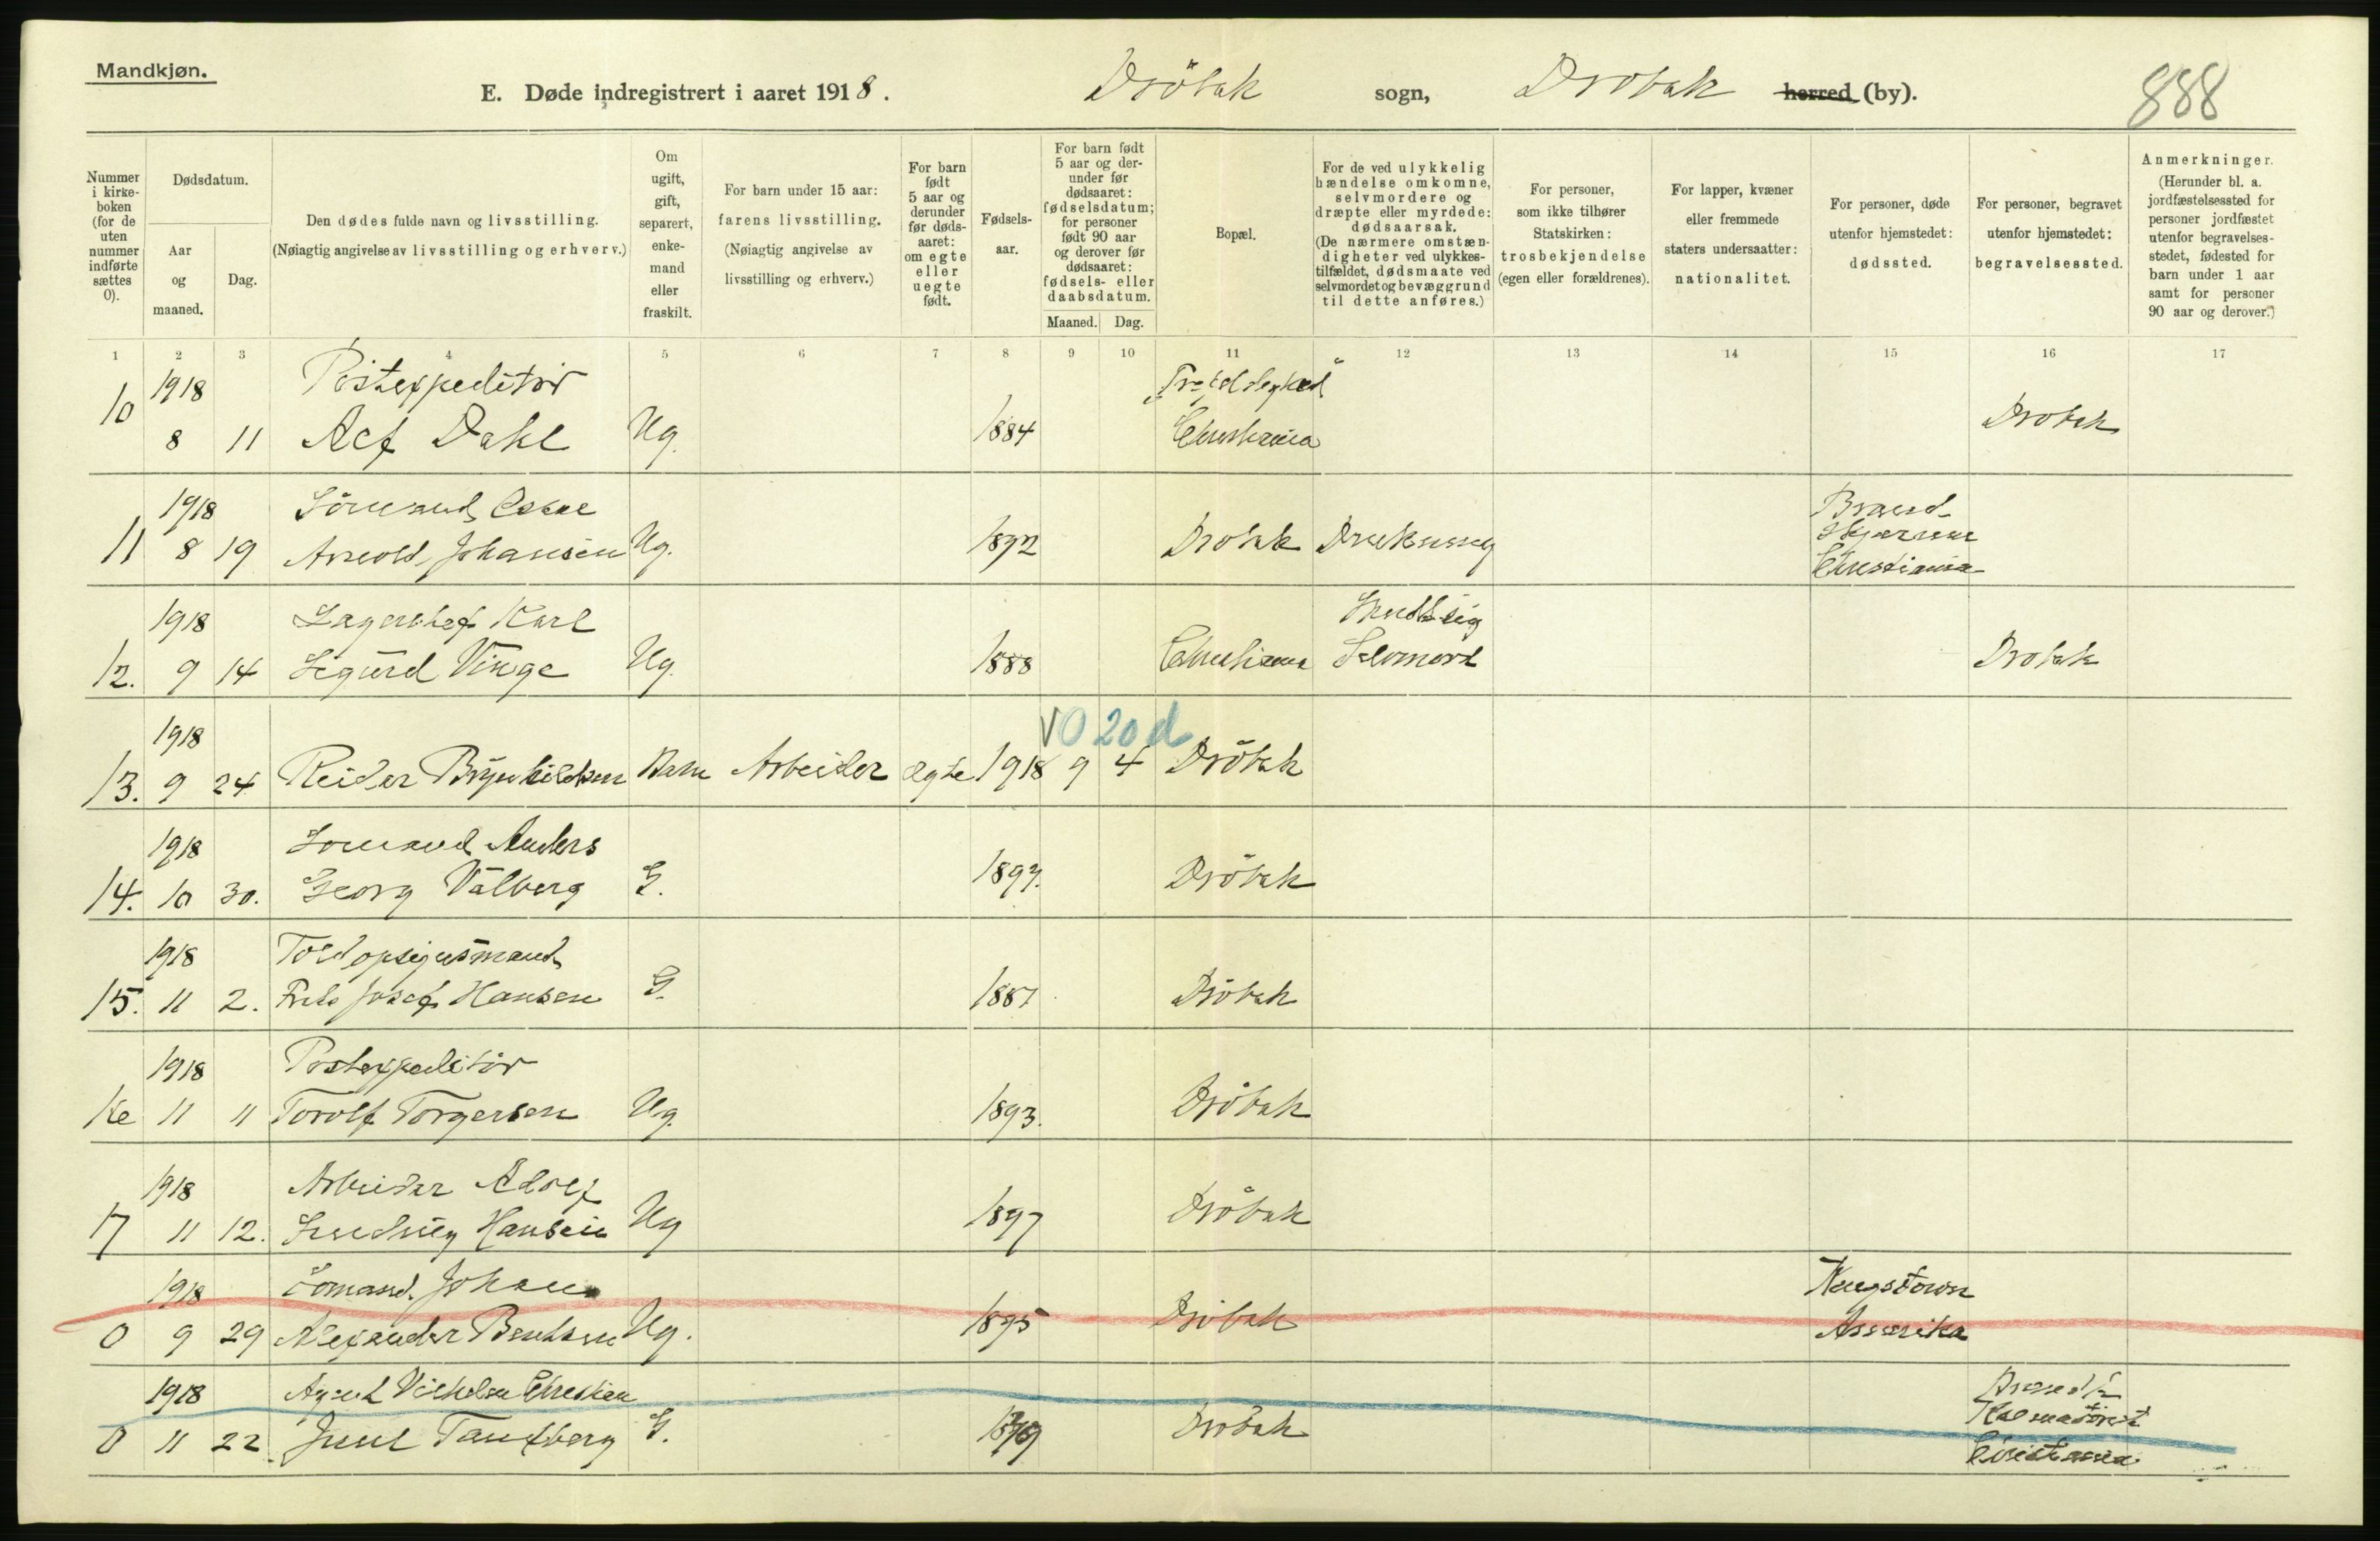 Mandkjøn.
E. Døde indregistrert i aaret 1918. Dröbak sogn, Drøbak herred (by). 888
Nummer i kirke-boken (for de uten nummer indførte sættes 0).
Dødsdatum.
Aar og maaned.
Dag.
Den dødes fulde navn og livsstilling.
(Nøiagtig angivelse av livsstilling og erhverv.)
Om ugift, gift, separert, enke-mand eller fraskilt.
For barn under 15 aar: farens livsstilling.
(Nøiagtig angivelse av livsstilling og erhverv.)
For barn født 5 aar og derunder før døds-aaret: om egte eller uegte født.
Fødsels-aar.
For barn født 5 aar og der-under før dødsaaret: fødselsdatum; for personer født 90 aar og derover før dødsaaret: fødsels- eller daabsdatum.
Maaned. Dag.
Bopæl.
For de ved ulykkelig hændelse omkomne, selvmordere og dræpte eller myrdede: dødsaarsak.
(De nærmere omstæn-digheter ved ulykkes-tilfældet, dødsmaate ved selvmordet og bevæggrund til dette anføres.)
For personer, som ikke tilhører Statskirken: trosbekjendelse (egen eller forældrenes).
For lapper, kvæner eller fremmede staters undersaatter: nationalitet.
For personer, døde utenfor hjemstedet: dødssted.
For personer, begravet utenfor hjemstedet: begravelsessted.
Anmerkninger.
(Herunder bl. a. jordfæstelsessted for personer jordfæstet utenfor begravelses-stedet, fødested for barn under 1 aar samt for personer 90 aar og derover.)
1 2 3 4 5 6 7 8 9 10 11 12 13 14 15 16 17
1918 Postexpeditör
10 8 11 Alf Dahl Ug. 1884 Christiania Drobak
1918 Sömand, Oskar
11 8 19 Arnold Johansen Ug. 1892 Drobak Drukning
Christiania
1918 Lagerchef Karl
12. 9 14 Sigurd Vinge Ug. 1888 Christiania Selvmord Drobak
1918 V 0 20 d
13. 9 24 Reidar Brynhildsen Barn Arbeider ægte 1918 9 4 Dröbak
1918 Sömand Anders
14. 10 30. Georg Valberg G. 1897. Dröbak
1918 Toldopsynsmand
15. 11 2. Frits Josef Hansen G. 1887 Dröbak
1918 Postexpeditör
16 11 11 Torolf Torgersen Ug. 1893. Dröbak
1918 Arbeider Adolf
17 11 12. Ludvig Hansen Ug 1897 Dröbak
1918 Sömand. Johan Kingstown
0 9 29 Alexander Bentsen Ug. 1895 Dröbak Amerika
1918 Agent Vilhelm Christian
0 11 22. Juul Tandberg G. Dröbak
Christiania